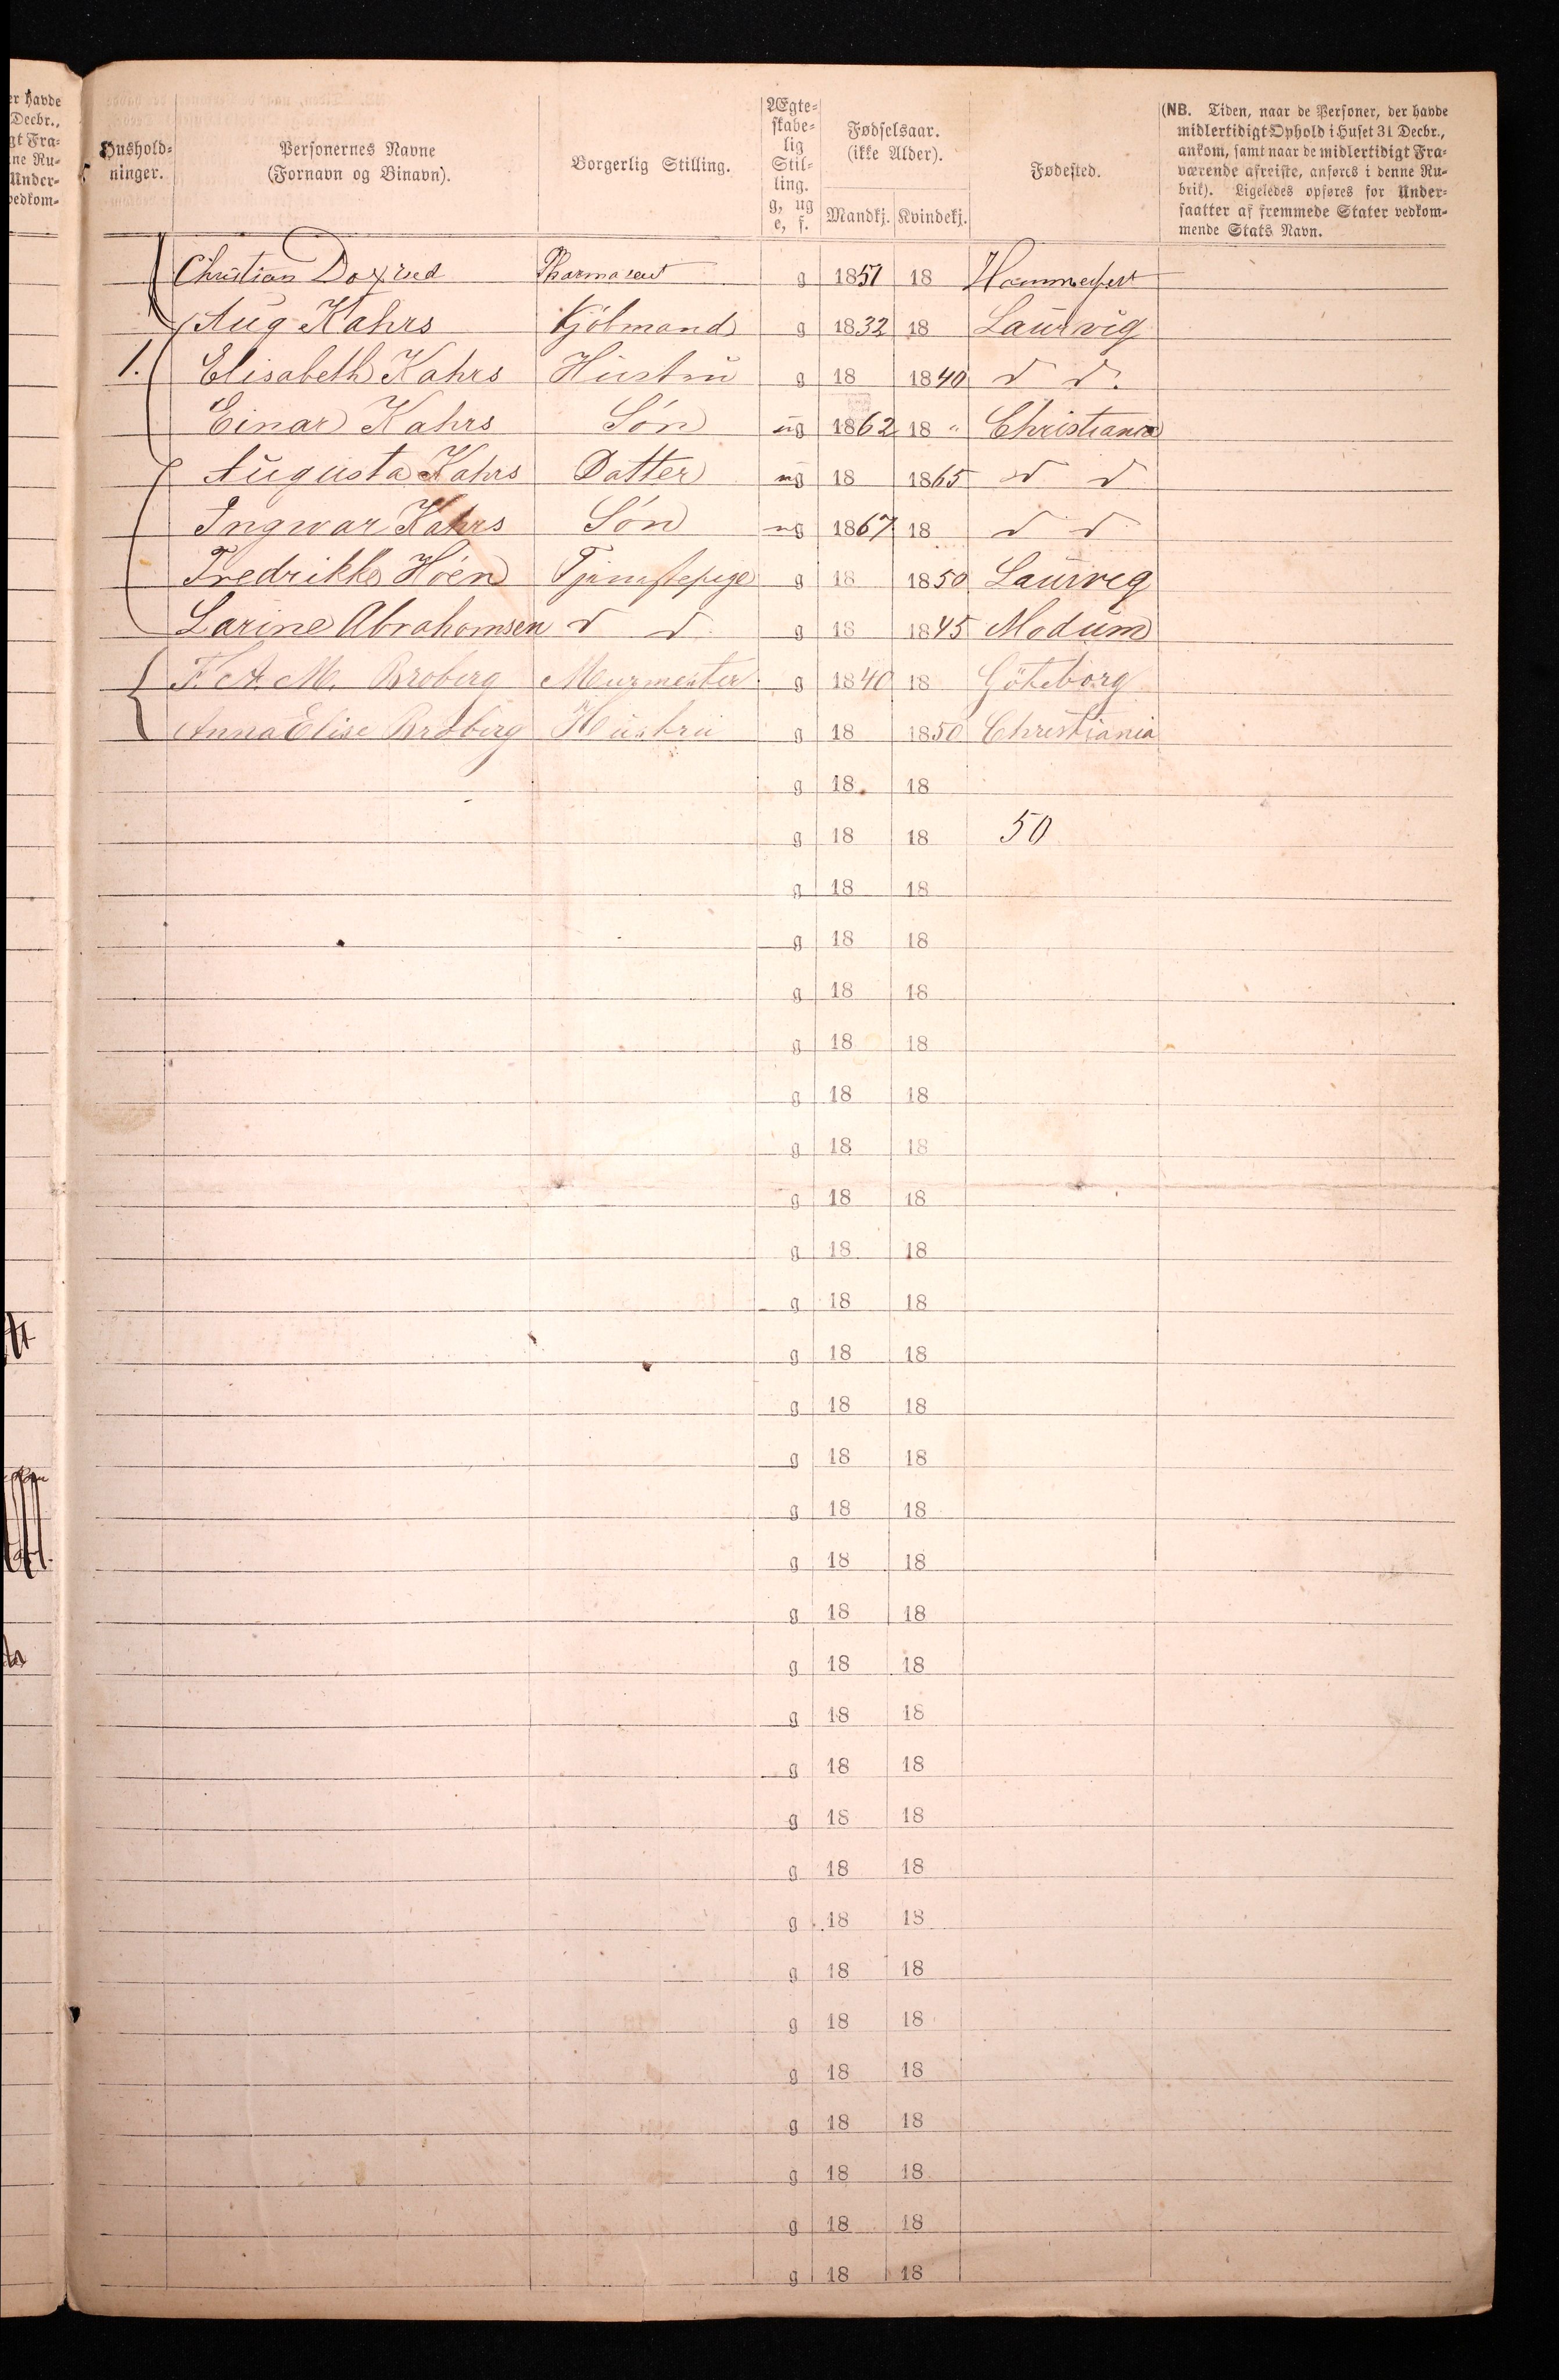 Hushold-
ninger.
Personernes Navne
(Fornavn og Binavn).
Borgerlig Stilling.
Ægte-
skabe-
lig
Stil-
ling.
g, ug
e, f.
Fødselsaar.
(ikke Alder).
Mandkj. Kvindekj.
Fødested.
(NB. Tiden, naar de Personer, der havde
midlertidigt Ophold i Huset 31 Decbr.,
ankom, samt naar de midlertidigt Fra-
værende afreiste, anføres i denne Ru-
brik). Ligeledes opføres for Under-
saatter af fremmede Stater vedkom-
mende Stats Navn.
Christian Doxrud Pharmaceut g 1851 18 Hammerfest
Aug Kahrs Kjöbmand g 1832 18 Laurvig
1. Elisabeth Kahrs Hustru g 18 1840 d d.
Einar Kahrs Sön ug 1862 18 " Christiania
Augusta Kahrs Datter ug 18 1865 d d
Ingwar Kahrs Sön ug 1867 18 d d
Fredrikke Höen Tjenestepige g 18 1850 Laurvig
Larine Abrahamsen d d g 18 1845 Modum
F. A. M. Broberg Murmester g 1840 18 Göteborg
Anna Elise Broberg Hustru g 18 1850 Christiania
g 18 18
g 18 18 50
g 18 18
g 18 18
g 18 18
g 18 18
g 18 18
g 18 18
g 18 18
g 18 18
g 18 18
g 18 18
g 18 18
g 18 18
g 18 18
g 18 18
g 18 18
g 18 18
g 18 18
g 18 18
g 18 18
g 18 18
g 18 18
g 18 18
g 18 18
g 18 18
g 18 18
g 18 18
g 18 18
g 18 18